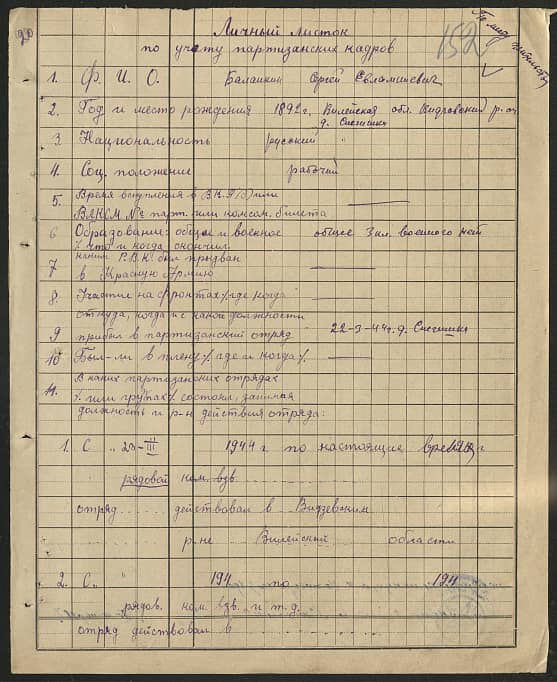 20
Личный листок
по учету партизанских кадров
152
По месту жительства
1. Ф. И. О. Балашкин Сергей Евлампиевич
2. Год и место рождения 1892 г. Вилейская обл. Видзовский р-он
д. Снегишки
3. Национальность русский
4. Соц. положение рабочий
5. Время вступления в В.К.П/б/ или
ВЛКСМ № парт. или комсом. билета
6 Образование: общее и военное общее 3 кл. военного нет
/. что и когда окончил
7 каким Р.В.К. был призван
в Красную Армию
8. Участие на фронтах /. где когда
откуда, когда и с какой должности
9 прибыл в партизанский отряд 22-3-44 г. д. Снегишки
10 Был-ли в плену /. где и когда /.
11. В каких партизанских отрядах
/. или групах /. состоял, занимая
должность и р-н действия отряда:
1. С " 23-III 1944 г. по настоящие время
рядовой ком. взв.
отряд действовал в Видзевским
р-не Вилейский области
2. С " 194 по 194
рядов. ком. взв. и т. д.
отряд действовал в